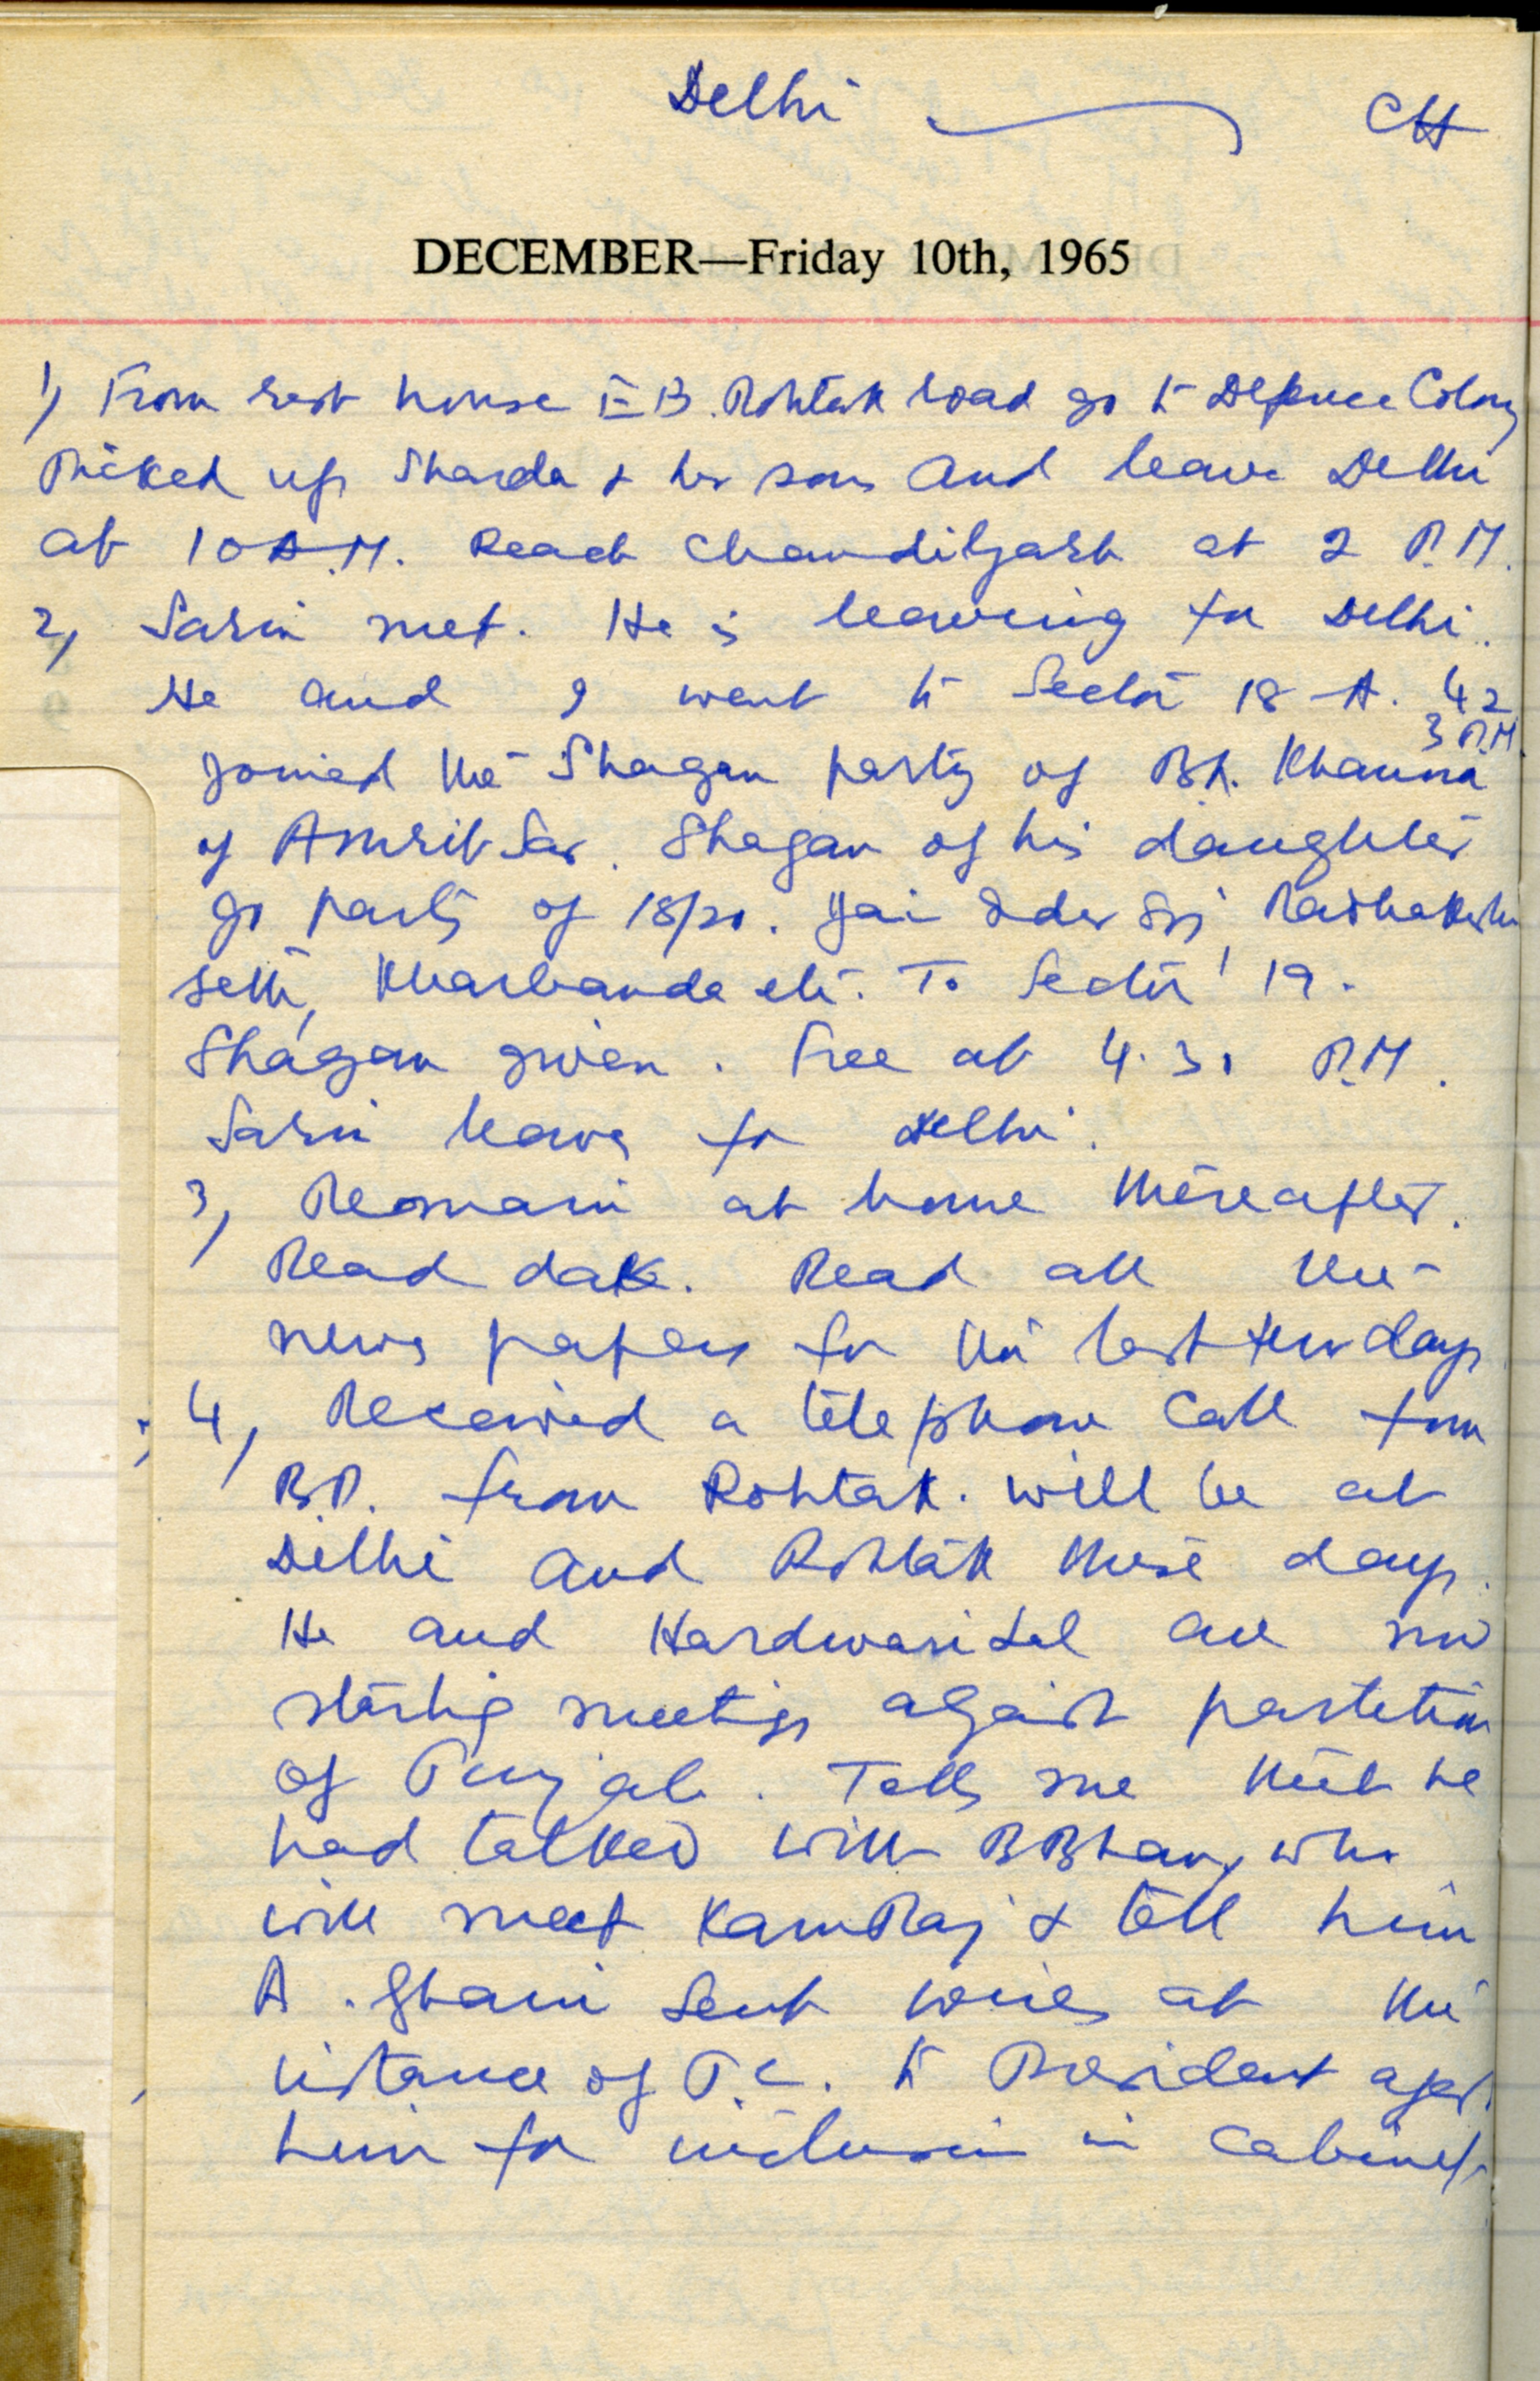 Delhi — CH
DECEMBER—Friday 10th, 1965
1, From rest house EB. Rohtak road go to Defence Colony
Picked up Sharda & her son and leave Delhi
at 10 A.M. Reach Chandigarh at 2 P.M.
2, Sarin met. He is leaving for Delhi.
He and I went to Sector 18-A. 42
3 P.M.
joined the Shagan party of Bh. Khanna
of Amritsar. Shagan of his daughter
go party of 18/20. Jai Inder Sing,
Sethi, Kharbanda etc. To Sector 19.
Shagan given. Free at 4.30 P.M.
Sarin leaves for Delhi.
3, Remain at home thereafter.
Read dak. Read all the
news papers for the last ten days
4, Received a telephone call from
B.D. from Rohtak. will be at
Delhi and Rohtak these days.
He and Hardwari Lal are now
starting meetings against partetion
of Punjab. Tells me that he
had talked with B Bhan, who
will meet KamRaj & tell him
A. Ghani sent wires at the
instance of P.C. to President agst.
him for inclusion in Cabinet.